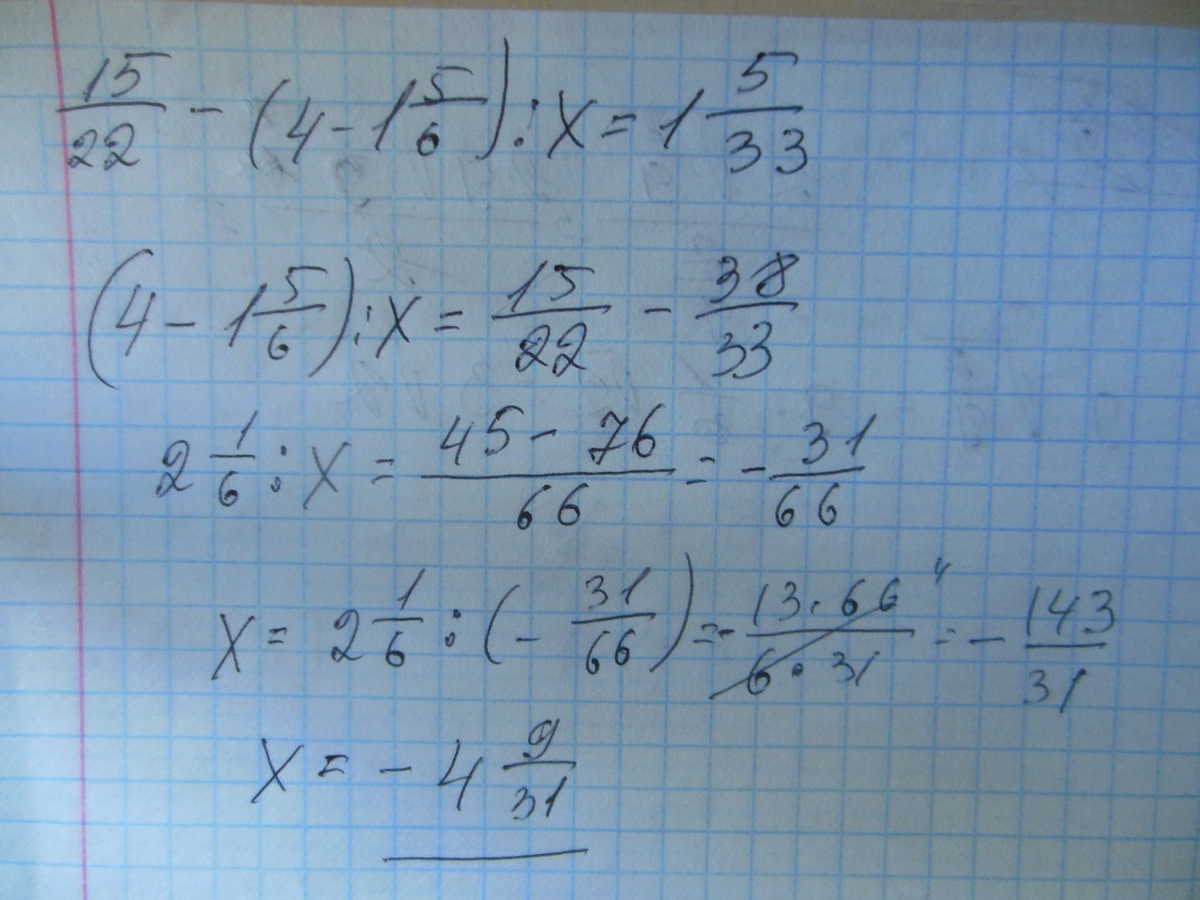 15/22 - (4 - 1 5/6) : x = 1 5/33
(4 - 1 5/6) : x = 15/22 - 38/33
2 1/6 : x = (45 - 76)/66 = - 31/66
x = 2 1/6 : (- 31/66) = - (13 · 66 11)/(6 · 31) = - 143/31
x = - 4 9/31